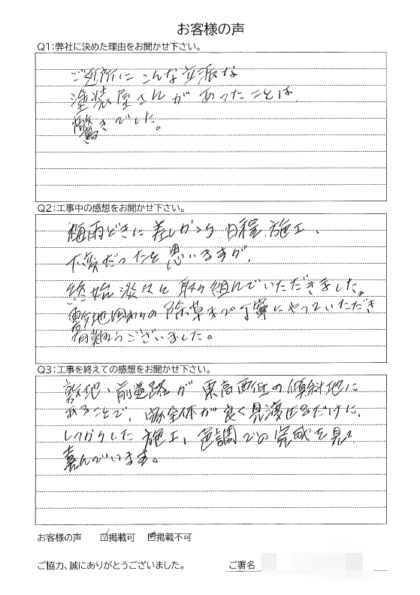 お客様の声
Q1:弊社に決めた理由をお聞かせ下さい。
ご近所にこんな立派な
塗装屋さんがあったことは
驚きでした。
Q2:工事中の感想をお聞かせ下さい。
梅雨どきに差しかかり日程、施工、
大変だったと思いますが、
終始淡々と取り組んでいただきました。
敷地周わりの除草まで丁寧にやっていただき
有難うございました。
Q3:工事を終えての感想をお聞かせ下さい。
敷地、前道路が東高西低の傾斜地に
あることで、家全体が良く見渡せるだけに、
しっかりした施工、色調での完成を見て
喜んでいます。
お客様の声 掲載可 掲載不可
ご協力、誠にありがとうございました。 ご署名